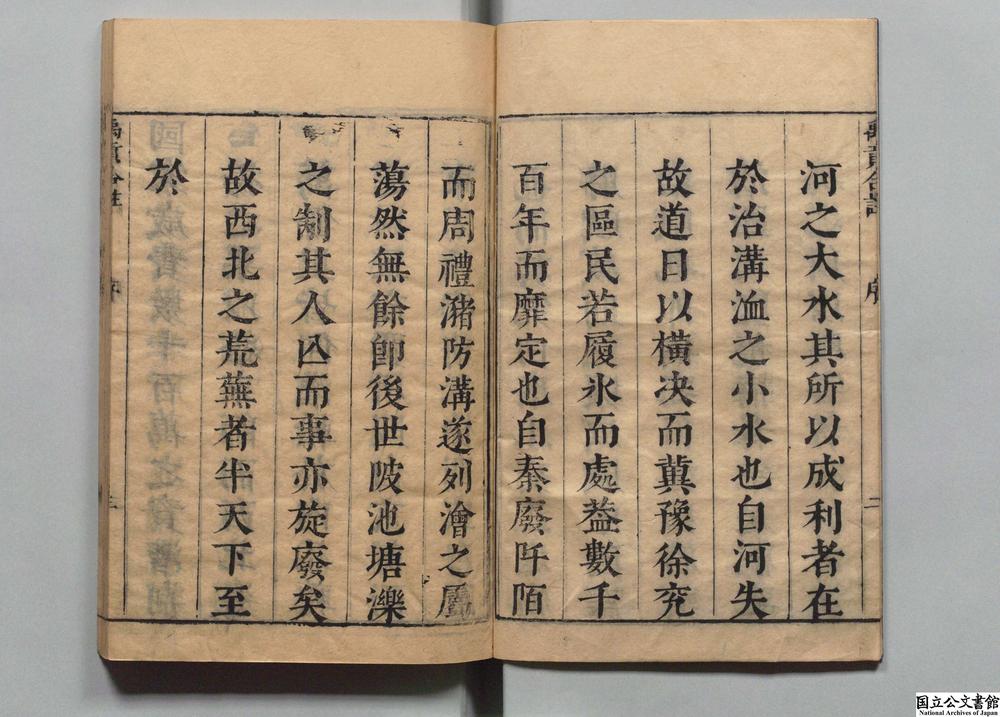 河之大水其所以成利者在
於治溝洫之小水也自河失
故道日以橫决而冀豫徐兖
之區民若履氷而處葢數千
百年而靡定也自秦廢阡陌
而周禮瀦防溝遂列澮之
蕩然無餘卽後世陂池塘濼
之制其人亾而事亦旋廢矣
故西北之荒蕪者半天下至
於
国立公文書館
National Archives of Japan